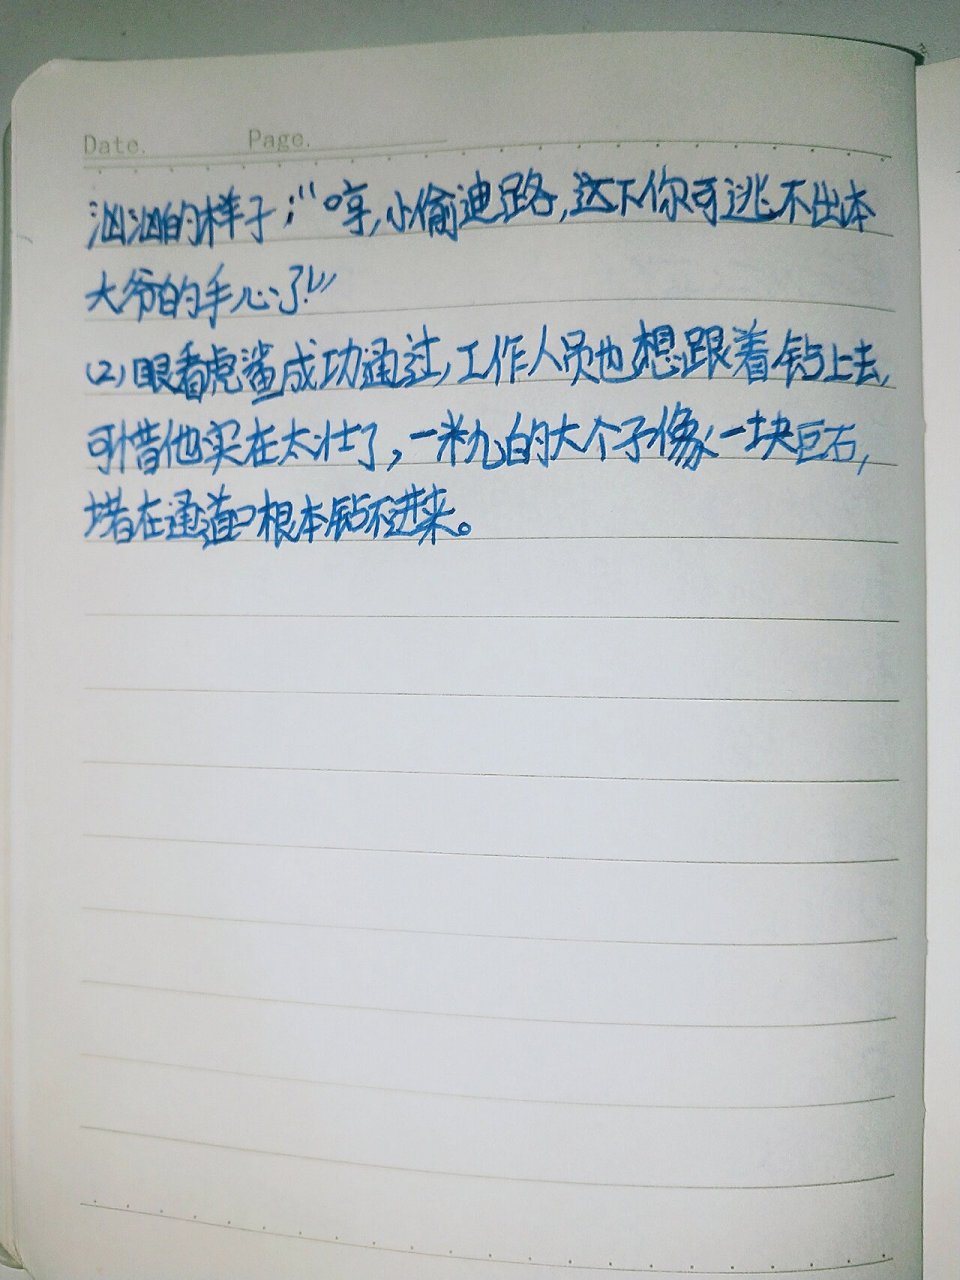 Date. Page.
汹汹的样子；“哼，小偷迪路，这下你可逃不出本
大爷的手心了！”
(2)眼看虎鲨成功通过，工作人员也想跟着钻上去，
可惜他实在太壮了，一米九的大个子像一块巨石，
堵在通道口根本钻不进来。